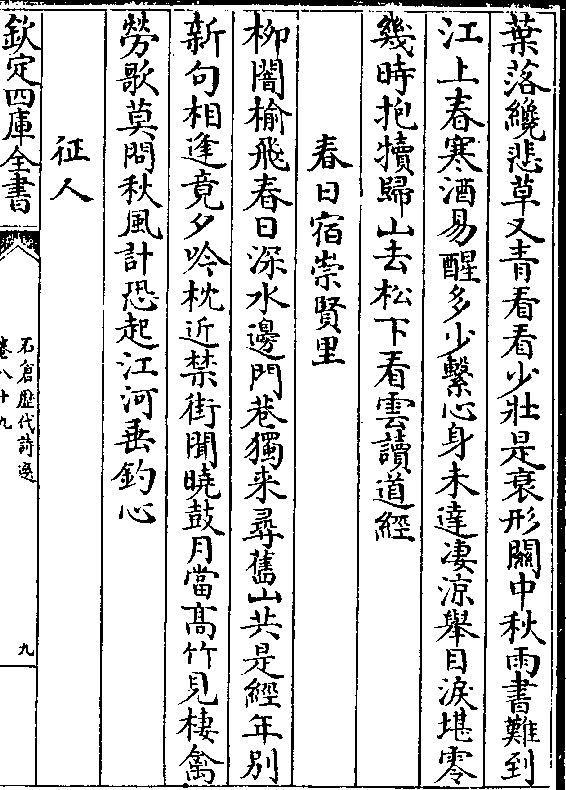 葉落纔悲草又青看看少壯是衰形關中秋雨書難到
江上春寒酒易醒多少繫心身未達凄涼舉目淚堪零
幾時抱犢歸山去松下看雲讀道經
春日宿崇賢里
柳闇榆飛春日深水邊門巷獨来尋舊山共是經年別
新句相逢竟夕吟枕近禁街聞曉鼓月當髙竹見棲禽
勞歌莫問秋風計恐起江河垂釣心
征人
欽定四庫全書
石倉歴代詩選
卷八十九
九